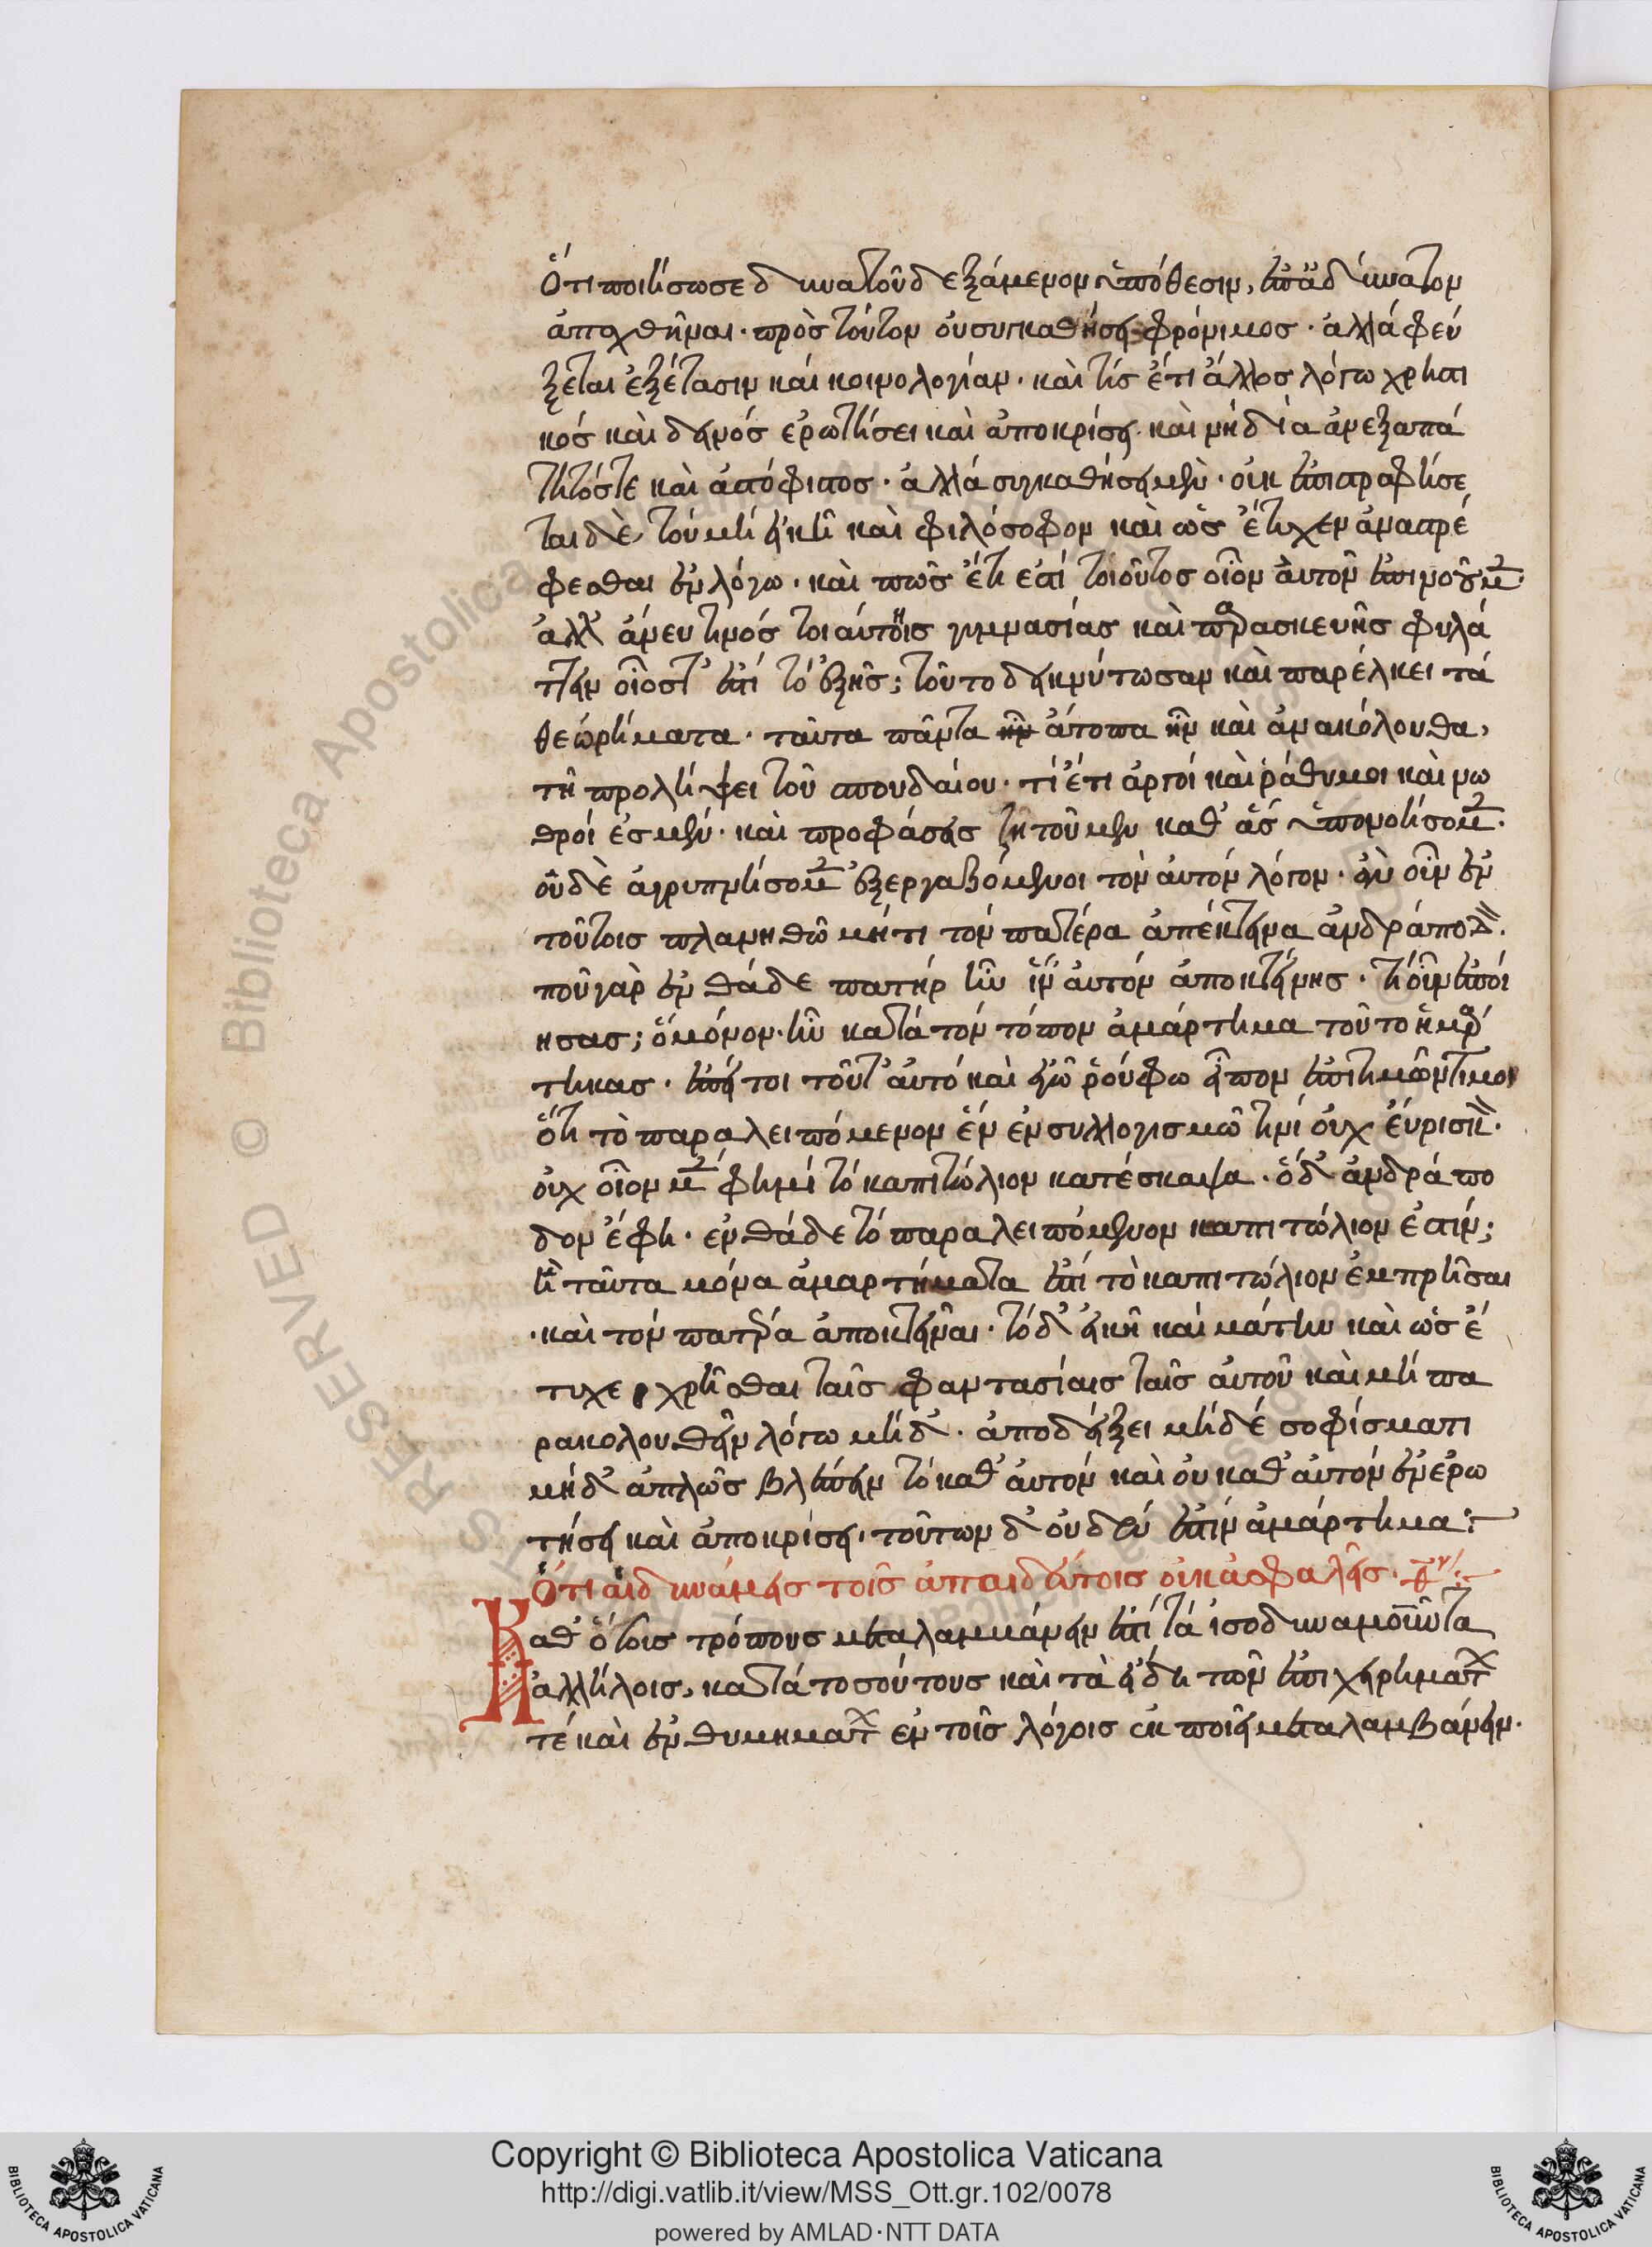 Ὅτι ποιήσω σε δυνατοῦ δεξάμενον ὑπόθεσιν, ἐπ' ἀδύνατον
ἀπαχθῆναι· πρὸς τούτον οὐ συγκαθήσει φρόνιμος· ἀλλὰ φεύ
ξεται ἐξέτασιν καὶ κοινολογίαν· καὶ τίς ἔτι ἄλλος λόγω χρηστι
κός καὶ δεινός ἐρωτήσει καὶ ἀποκρίσει· καὶ νὴ δία ἀνεξαπά
τητόστε καὶ ἀσόφιστος· ἀλλὰ συγκαθήσει μὲν· οὐκ ἐπιστραφήσε
ται δὲ, τοῦ μὴ εἰκῆ καὶ φιλόσοφον καὶ ὡς ἔτυχεν ἀναστρέ
φεσθαι ἐν λόγω· καὶ πῶς ἔτι ἐστί τοιοῦτος οἷον αὐτὸν ἐπινοοῦμεν
ἀλλ' ἄνευ τινός τοιαύτης γυμνασίας καὶ παρασκευῆς φυλά
ττειν οἷός τ' ἐστί τὸ ἑξῆς; τοῦτο δεικνύτωσαν καὶ παρέλκει τὰ
θεωρήματα· ταῦτα πάντα ἦν ἄτοπα ἦν καὶ ἀνακόλουθα,
τῆ προλήψει τοῦ σπουδαίου· τί ἔτι ἀργοί καὶ ῥάθυμοι καὶ νω
θροί ἐσμέν· καὶ προφάσεις ζητοῦμεν καθ' ἃς οὐ πονήσομεν·
οὐδὲ ἀγρυπνήσομεν ἐξεργαζόμενοι τὸν αὐτὸν λόγον· ἂν οὖν ἐν
τούτοις πλανηθῶ μήτι τὸν πατέρα ἀπέκτεινα ἀνδράποδον·
ποῦ γὰρ ἐνθάδε πατήρ ἦν ἵν' αὐτὸν ἀποκτείνης· τί οὖν ἐποί
ησας; ὃ μόνον ἦν κατὰ τὸν τόπον ἁμάρτημα τοῦτο ἡμάρ
τηκας· ἐπεί τοι τοῦτ' αὐτό καὶ ἐγὼ ῥούφω εἶπον ἐπιτιμῶντί μοι
ὅτι τὸ παραλειπόμενον ἓν ἐν συλλογισμῶ τινί οὐχ εὕρισκον·
οὐχ οἷον μὲν φημί τὸ καπιτώλιον κατέσκαψα· ὁ δ' ἀνδράπο
δον ἔφη· ἐνθάδε τὸ παραλειπόμενον καπιτώλιον ἐστίν;
ἢ ταῦτα μόνα ἁμαρτήματα ἐστί τὸ καπιτώλιον ἐμπρῆσαι
·καὶ τὸν πατέρα ἀποκτεῖναι· τὸ δ' εἰκῆ καὶ μάτην καὶ ὡς ἔ
τυχε χρῆσθαι ταῖς φαντασίαις ταῖς αὐτοῦ καὶ μὴ πα
ρακολουθεῖν λόγω μὴδ'· ἀποδείξει μὴδέ σοφίσματι
μήδ' ἁπλῶς βλέπειν τὸ καθ' αὐτὸν καὶ οὐ καθ' αὐτὸν ἐν ἐρω
τήσει καὶ ἀποκρίσει· τούτων δ' οὐδὲν ἐστὶν ἁμάρτημα:
Ὅτι αἱ δυνάμεις τοῖς ἀπαιδεύτοις οὐκ ἀσφαλεῖς·
Καθ' ὅσους τρόπους μεταλαμμάνειν ἐστί τὰ ἰσοδυναμοῦντα
ἀλλήλοις, κατὰ τοσούτους καὶ τὰ εἴδη τῶν ἐπιχειρημάτων
τέ καὶ ἐνθυμημάτων ἐν τοῖς λόγοις ἐκποιεῖ μεταλαμβάνειν·
Copyright © Biblioteca Apostolica Vaticana
http://digi.vatlib.it/view/MSS_Ott.gr.102/0078
powered by AMLAD·NTT DATA